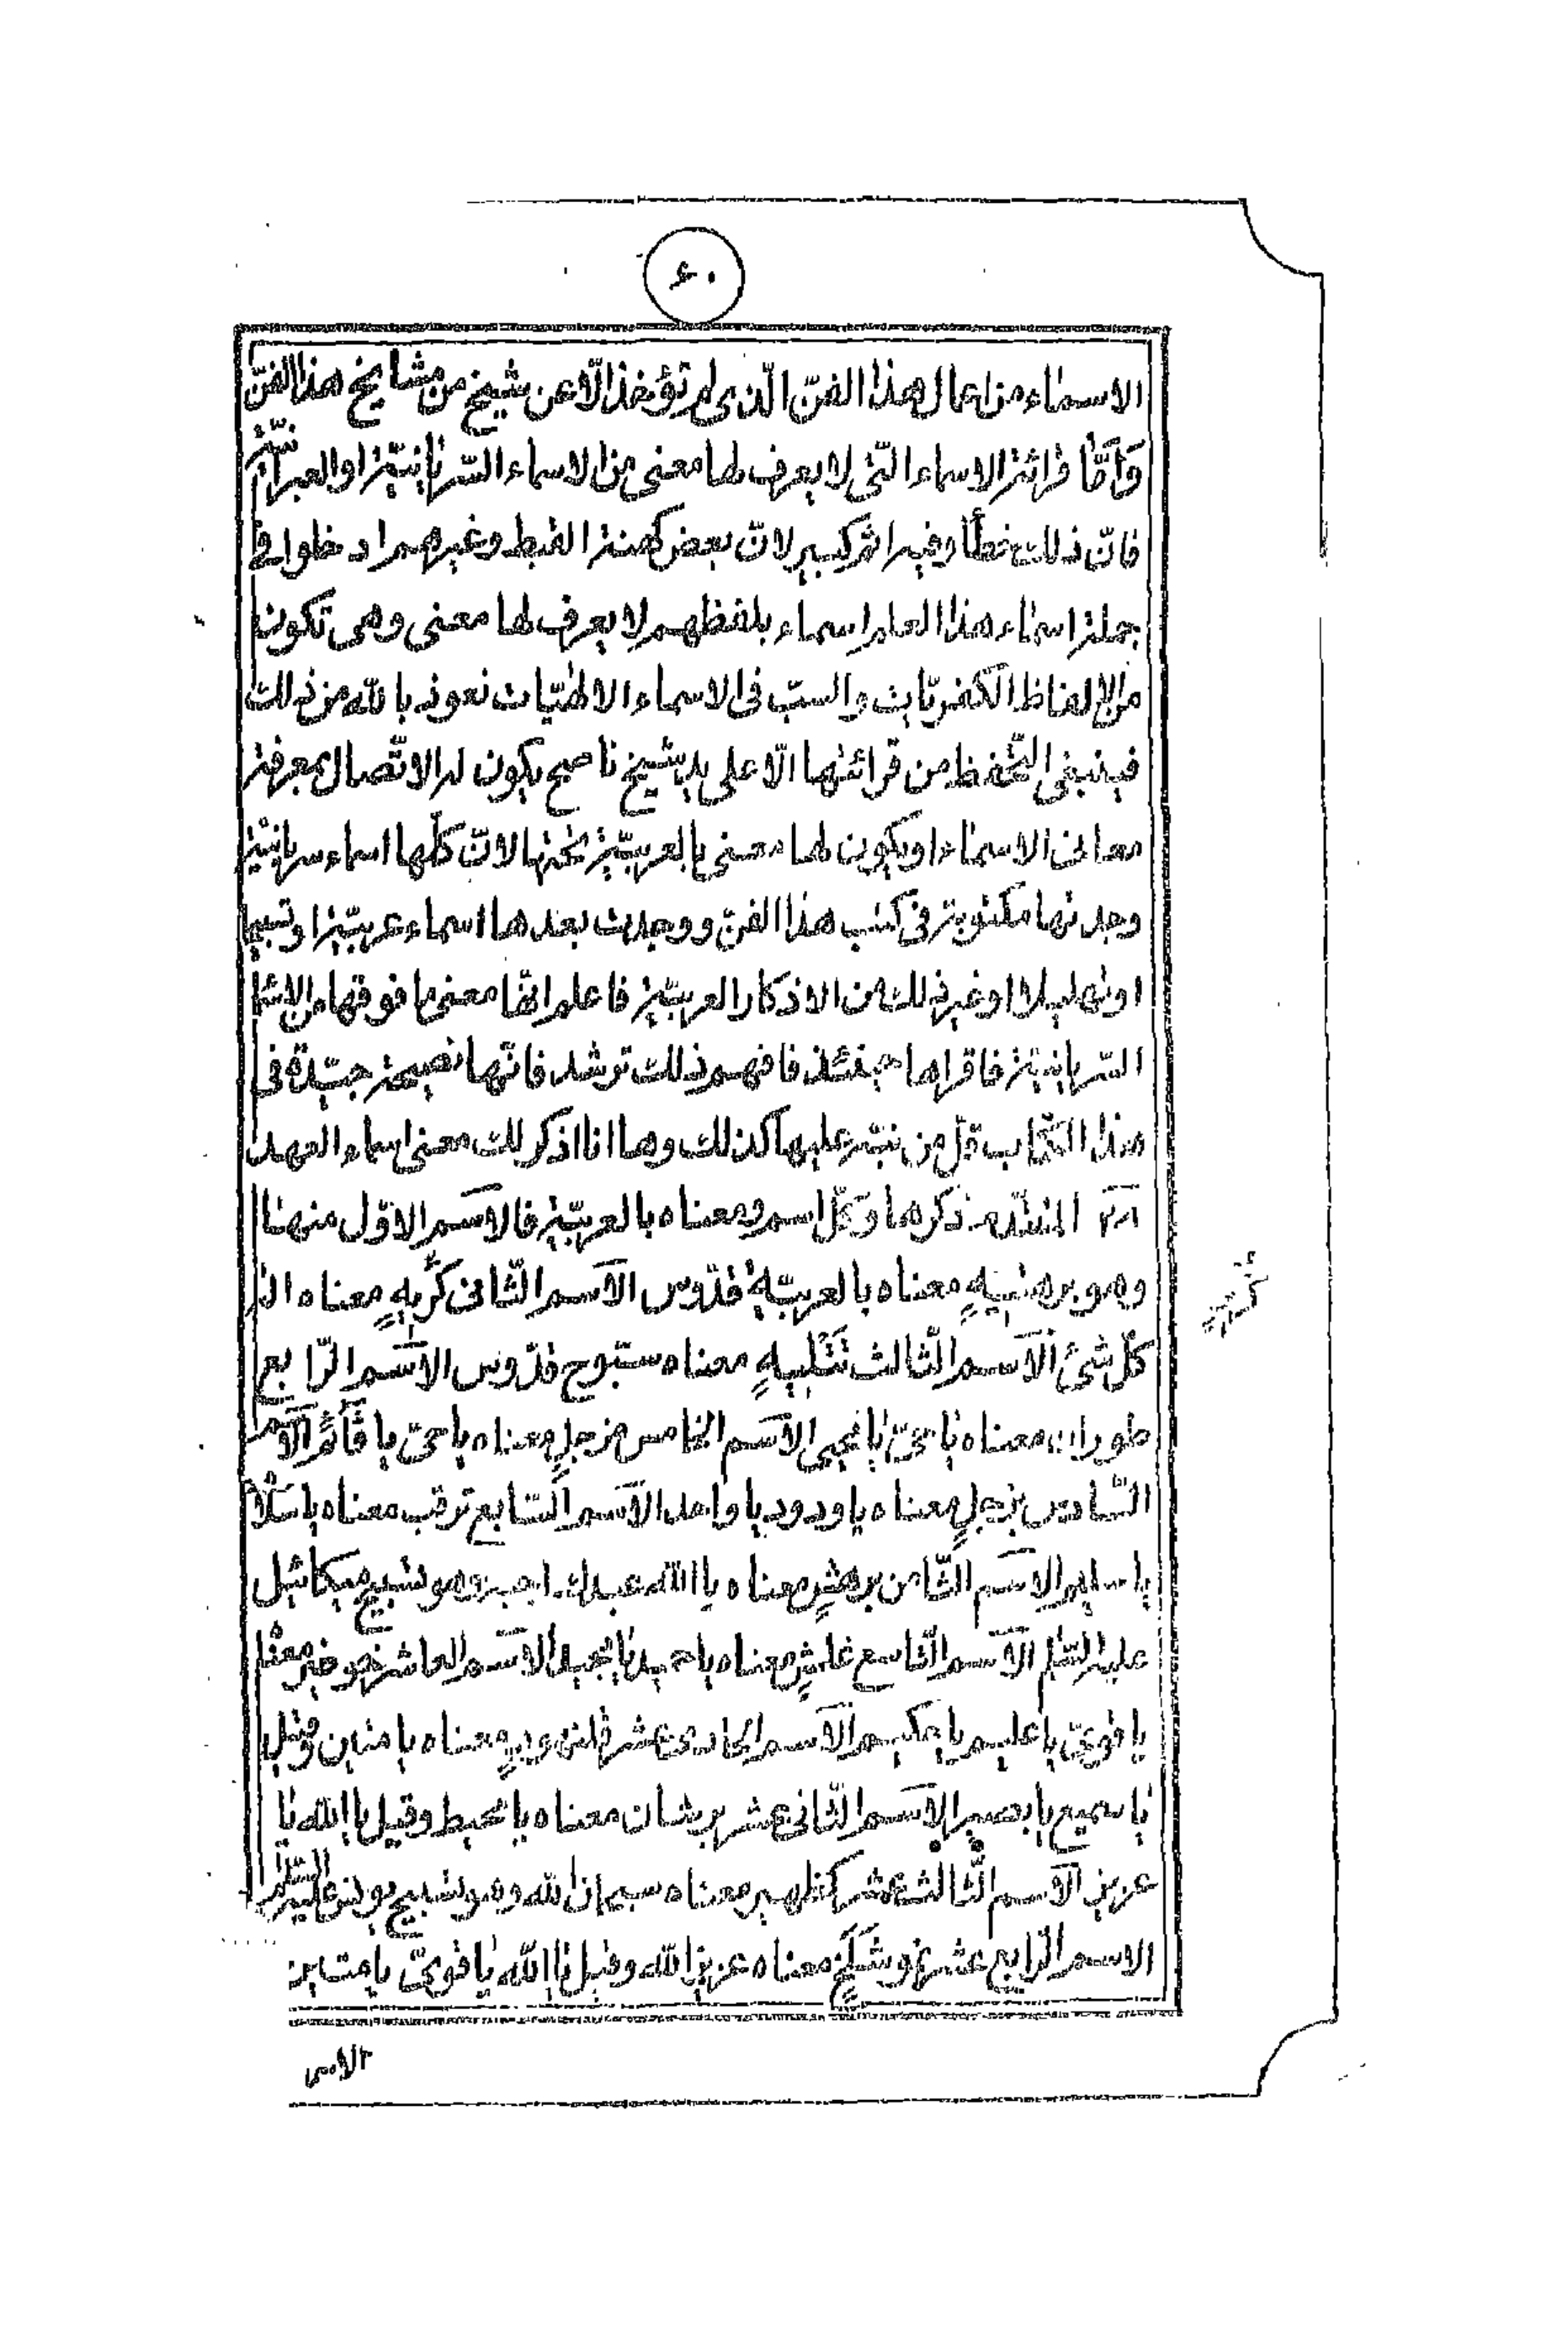 ۶۰
الاسماء من اعمال هذا الفنّ الّذى لم تؤخذ الّا عن شيخ من مشايخ هذا الفنّ
وَاَمّا قرائة الاسماء الّتى لا يعرف لها معنى من الاسماء السّريانيّة او العبرانيّة
فانّ ذلك خطأ وفيه اثم كبير لانّ بعض كهنة القبط وغيرهم ادخلوا فى
جملة اسماء هذا العلم اسماء بلفظهم لا يعرف لها معنى وهى تكون
من الالفاظ الكفريّات والسبّ فى الاسماء الالهيّات نعوذ بالله من ذلك
فينبغى التّحفظ من قرائتها الّا على يد شيخ ناصح يكون له الاتّصال بمعرفة
معانى الاسماء او يكون لها معنى بالعربيّة تحتها لانّ كلّها اسماء سريانيّة
وجدتها مكتوبة فى كتب هذا الفنّ ووجدت بعدها اسماء عربيّة او تسبيحا
او تهليلا او غير ذلك من الاذكار العربيّة فاعلم انّها معنى ما فوقها من الاسماء
السّريانيّة فاقراها حينئذ فافهم ذلك ترشد فانّها نصيحة جيّدة فى
هذا الكتاب قلّ من نبّه عليها كذلك وها انا اذكر لك معنى اسماء العهد
المتقدّم ذكرها وكلّ اسم ومعناه بالعربيّة فالاسم الاوّل منها
وهو برهتيهٍ معناه بالعربيّة قدّوس الاسم الثّانى كريهٍ معناه اله
كلّ شئ الاسم الثّالث تتليهٍ معناه سبّوح قدّوس الاسم الرّابع
طوران معناه يا حىّ يا محيى الاسم الخامس مزجل معناه يا حىّ يا قائم الاسم
السّادس بزجلٍ معناه يا ودود يا واحد الاسم السّابع ترقب معناه يا سلام
يا سليم الاسم الثّامن برهشٍ معناه يا الله عبدك اجبه وهو تسبيح ميكائيل
عليه السّلام الاسم التّاسع غلمشٍ معناه يا حميد يا مجيد الاسم العاشر خوطير معناه
يا قوىّ يا عليم يا حكيم الاسم الحادى عشر قلنهودٍ معناه يا منان وقيل
يا سميع يا بصير الاسم الثّانى عشر برشان معناه يا محيط وقيل يا الله يا
عزيز الاسم الثّالث عشر كظهير معناه سبحان الله وهو تسبيح يونس عليه السّلام
الاسم الرّابع عشر نموشلخٍ معناه عزيز الله وقيل يا الله يا قوىّ يا متين
الاس